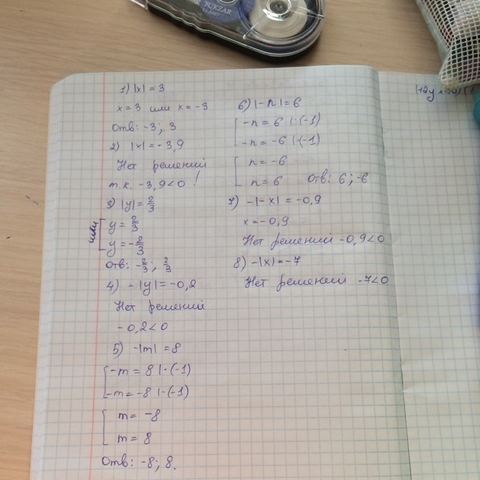 1) |x| = 3
x = 3 или x = -3
Отв: -3; 3
2) |x| = -3,9
Нет решений
т.к. -3,9<0 !
3) |y| = 2/3
или [ y = 2/3
y = -2/3
Отв: -2/3; 2/3
4) -|y| = -0,2
Нет решений
-0,2<0
5) -|m| = 8
[ -m = 8 |·(-1)
-m = -8 |·(-1)
[ m = -8
m = 8
Отв: -8; 8.
6) |-n| = 6
[ -n = 6 |·(-1)
-n = -6 |·(-1)
[ n = -6
n = 6 Отв: 6; -6
7) -|-x| = -0,9
x = -0,9
Нет решений -0,9<0
8) -|x| = -7
Нет решений -7<0